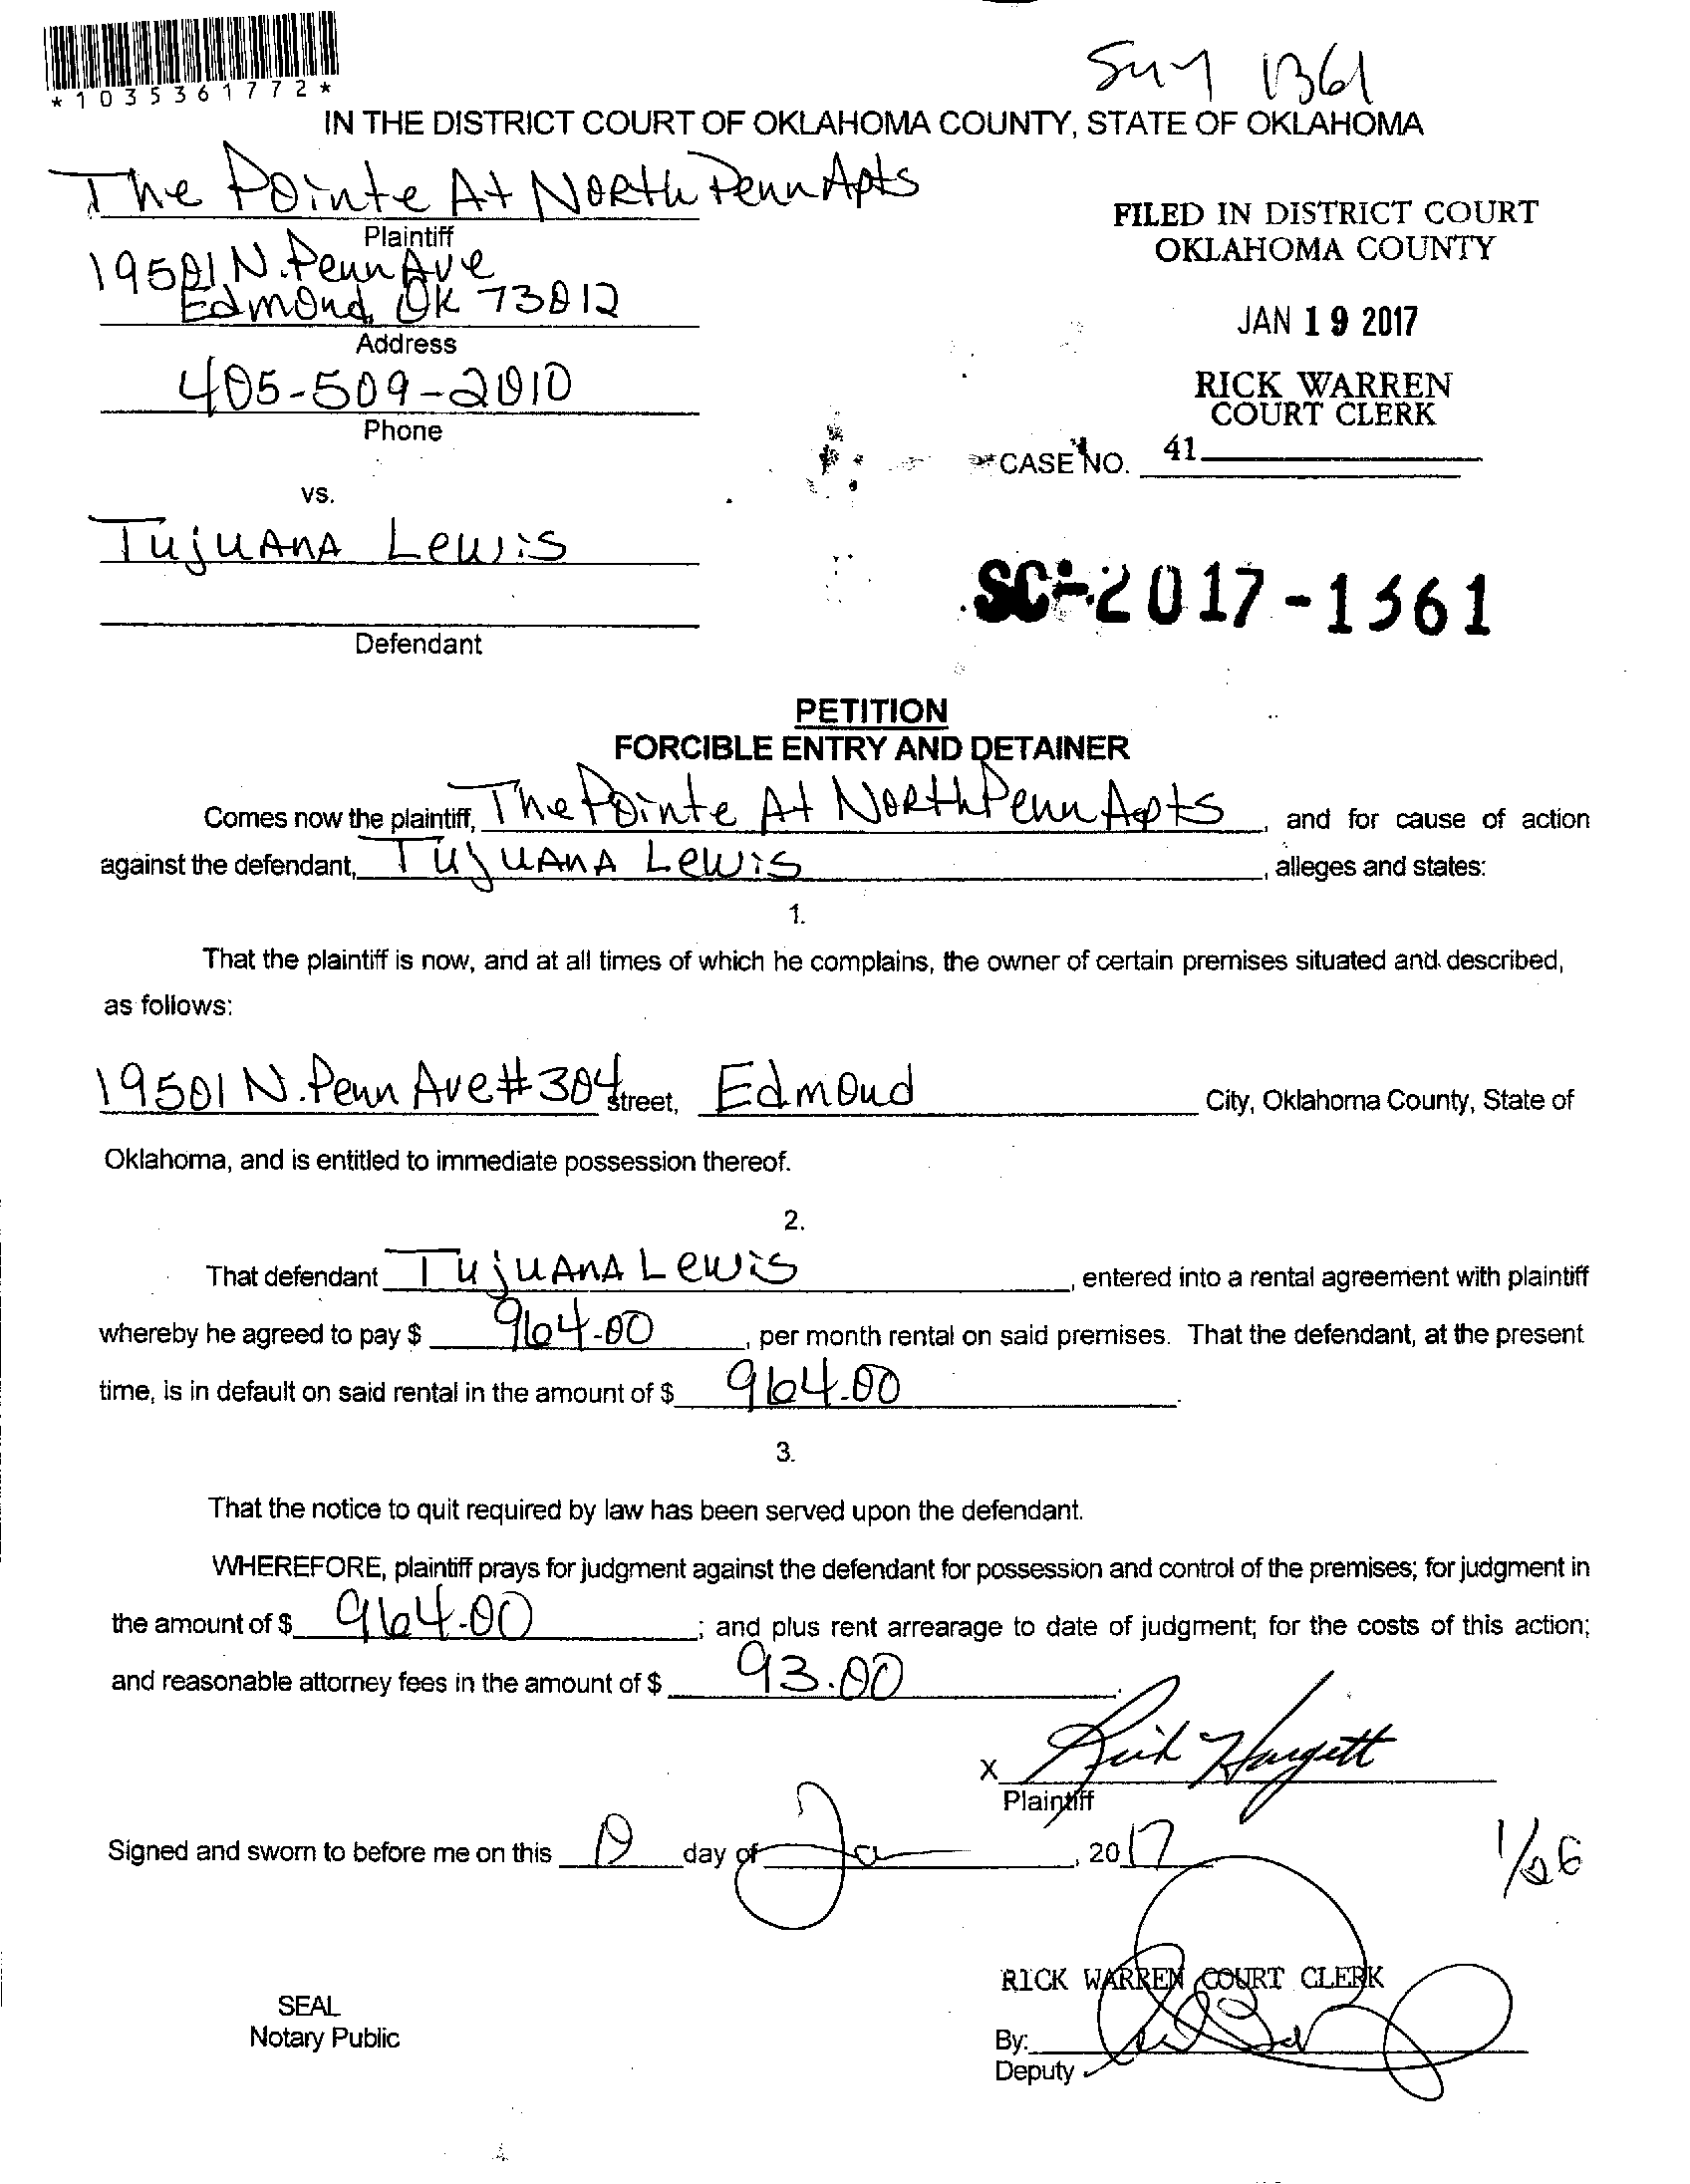 *1035361772*
1361
IN THE DISTRICT COURT OF OKLAHOMA COUNTY, STATE OF OKLAHOMA
The Pointe At North Penn Apts
Plaintiff
19501 N. Penn Ave
Edmond, Ok 73012
Address
405-509-2010
Phone
FILED IN DISTRICT COURT
OKLAHOMA COUNTY
JAN 19 2017
RICK WARREN
COURT CLERK
41
CASE NO.
vs.
TujuAnA Lewis
Defendant
SC-2017-1361
PETITION
FORCIBLE ENTRY AND DETAINER
Comes now the plaintiff, The Pointe At North Penn Apts, and for cause of action
against the defendant, TujuAnA Lewis, alleges and states:
1.
That the plaintiff is now, and at all times of which he complains, the owner of certain premises situated and described,
as follows:
19501 N. Penn Ave #304 street, Edmond City, Oklahoma County, State of
Oklahoma, and is entitled to immediate possession thereof.
2.
That defendant TujuAnA Lewis, entered into a rental agreement with plaintiff
whereby he agreed to pay $ 964.00, per month rental on said premises. That the defendant, at the present
time, is in default on said rental in the amount of $ 964.00.
3.
That the notice to quit required by law has been served upon the defendant.
WHEREFORE, plaintiff prays for judgment against the defendant for possession and control of the premises; for judgment in
the amount of $ 964.00; and plus rent arrearage to date of judgment; for the costs of this action;
and reasonable attorney fees in the amount of $ 93.00.
X Hargett
Plaintiff
Signed and sworn to before me on this 19 day of Ja, 2017
1/26
RICK WARREN COURT CLERK
SEAL
Notary Public
By:
Deputy